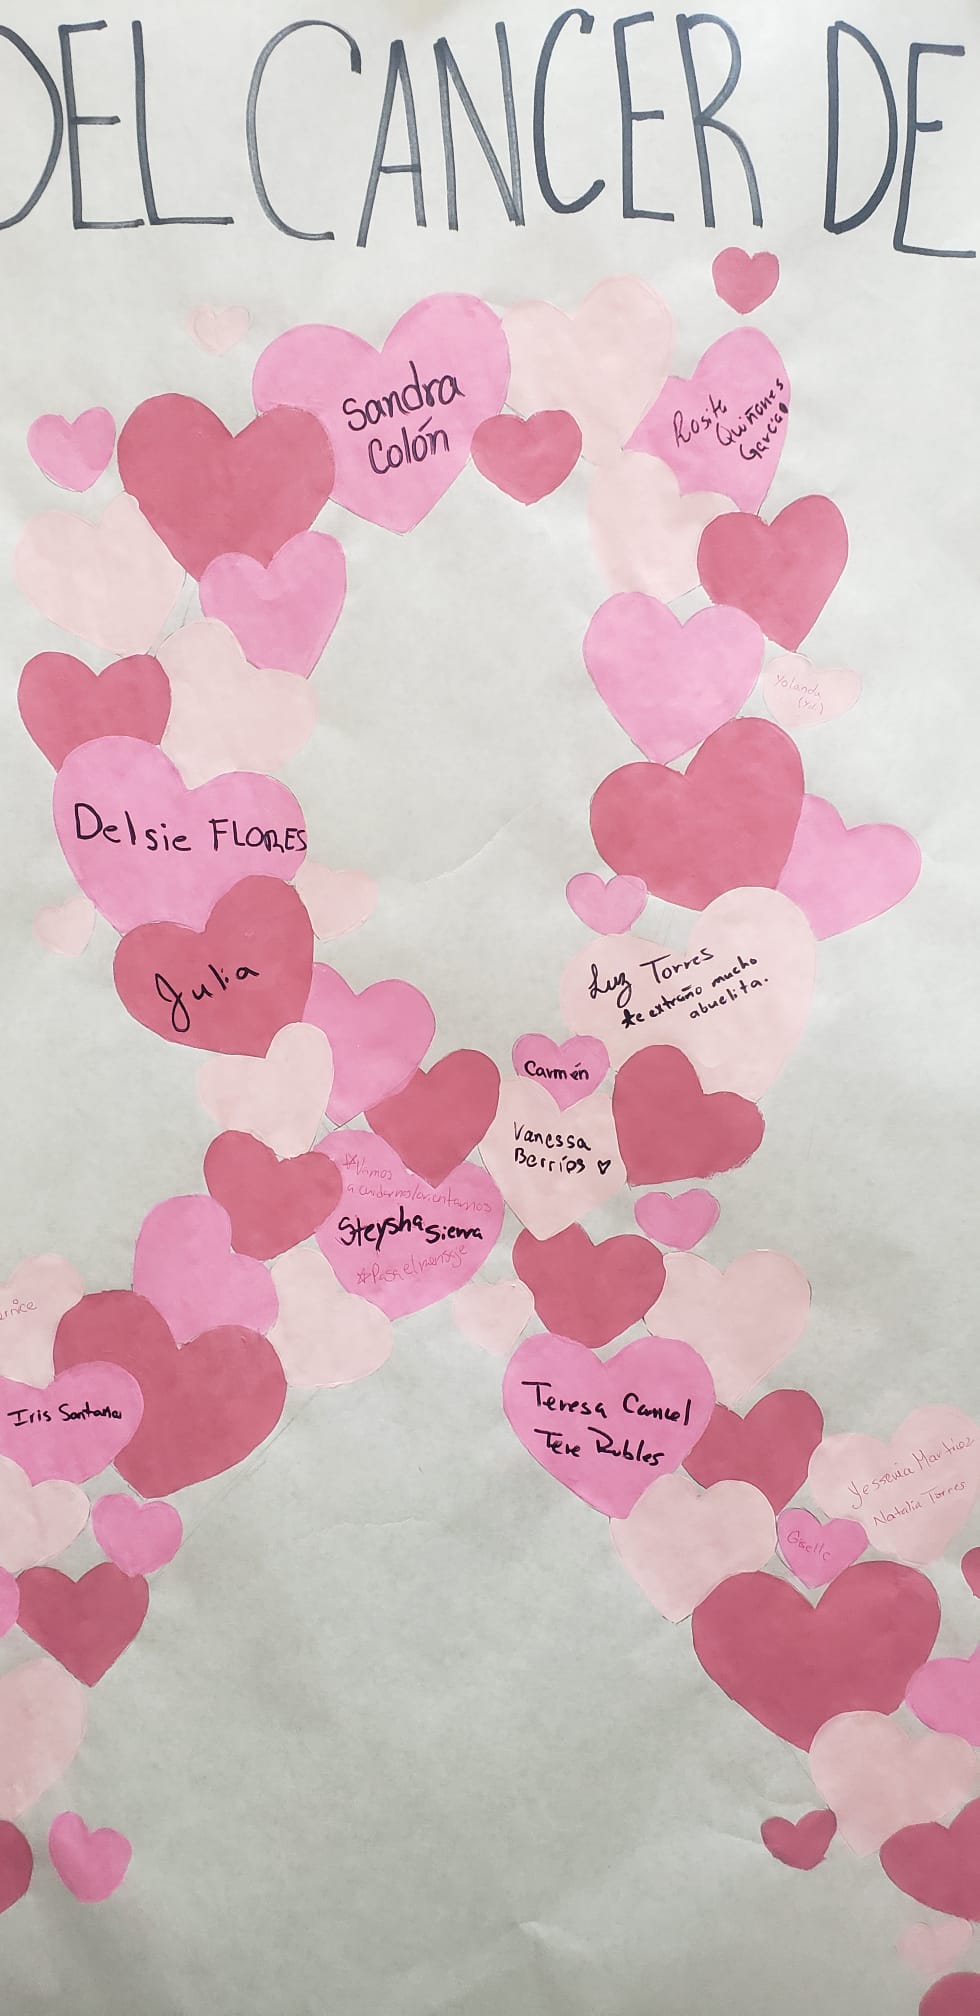 DEL CANCER DE
Sandra
Colón
Rosita
Quiñones
García
Yolanda
(Yoli)
Delsie FLORES
Julia
Luz Torres
te extraño mucho
abuelita.
Carmén
Vanessa
Berríos ♡
☆Vamos
a cuidarnos/orientarnos
Steysha Sierra
☆Pasa el mensaje
Iris Santana
Teresa Cancel
Tere Robles
Yessenia Martínez
Natalia Torres
Giselle